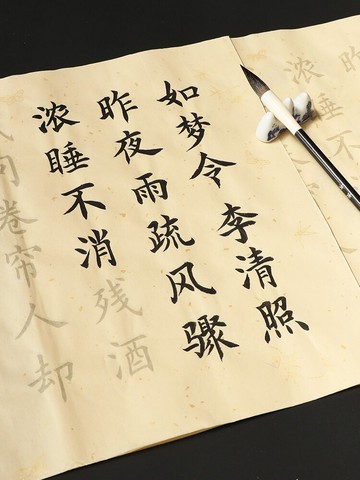 如梦令 李清照
昨夜雨疏风骤
浓睡不消残酒
问卷帘人却
昨
浓睡不